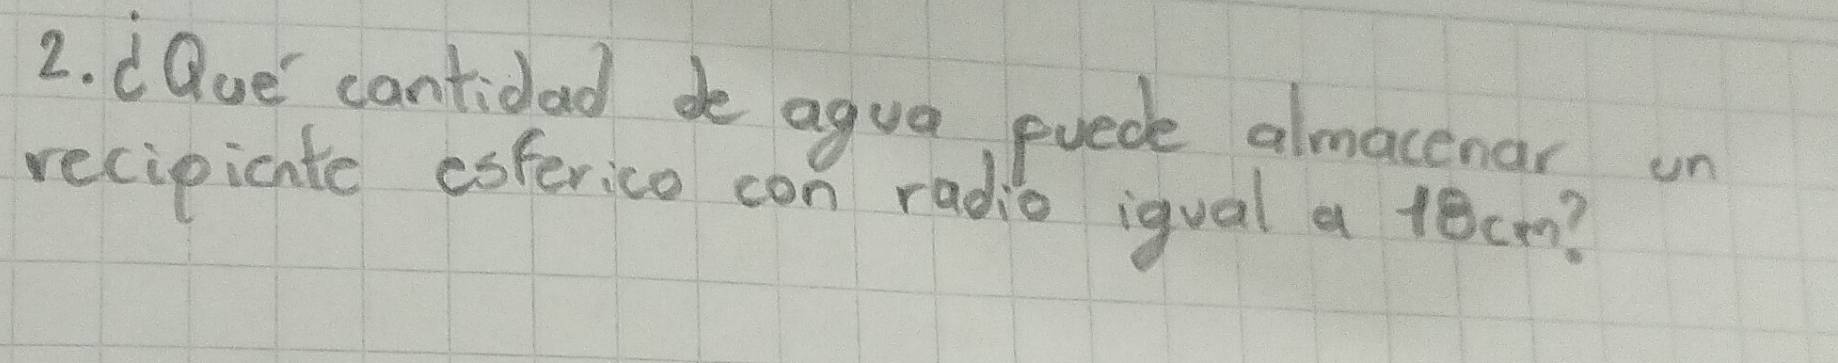 2. ¿Qué cantidad de agua puede almacenar un
recipiente esferico con radio igual a 18cm?